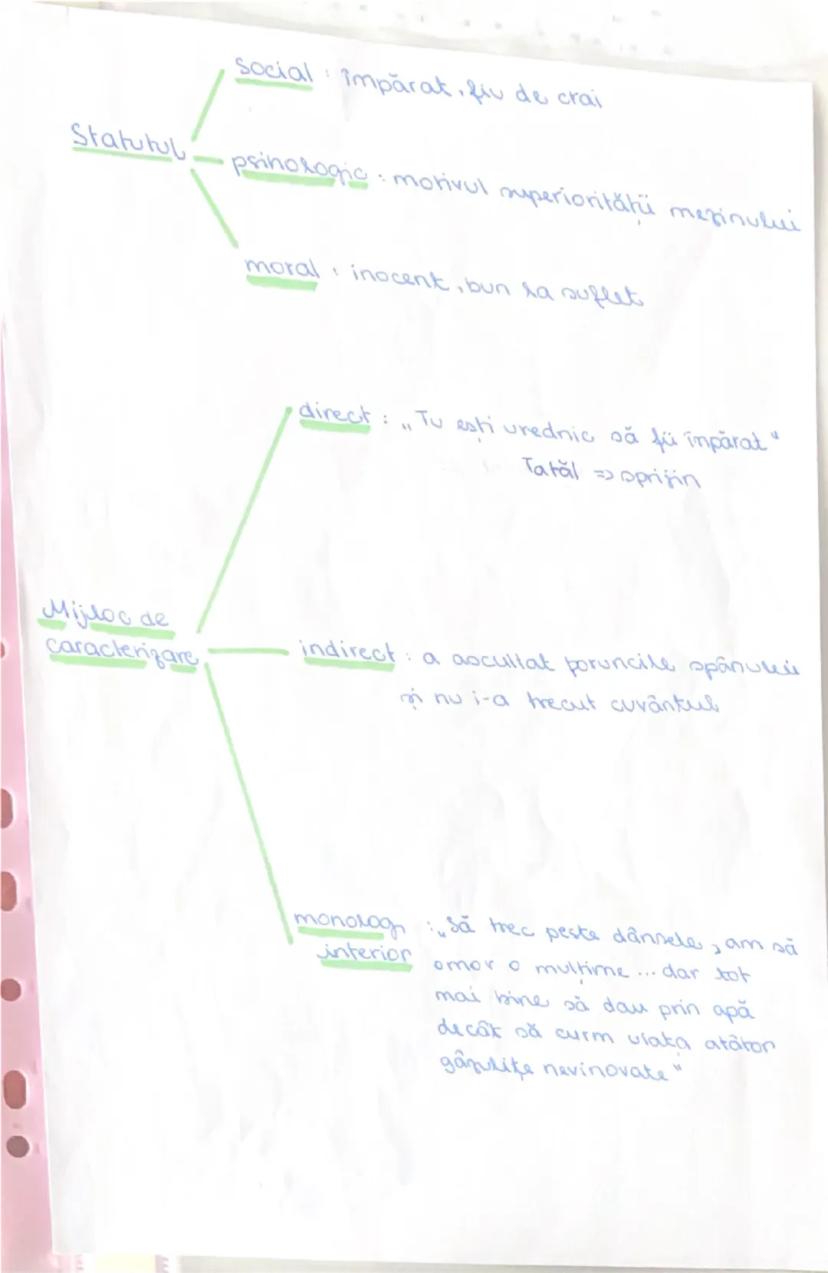 social : împărat, fiu de crai
Statutul
psihologic : motivul superiorității mezinului
moral : inocent, bun la suflet
direct : „Tu ești vrednic să fii înpărat"
Tatăl => sprijin
Mijloc de
caracterizare
indirect : a ascultat poruncile spânului
și nu i-a trecut cuvântul
monolog
interior
: „Să trec peste dânsele, am să
omor o mulțime ... dar tot
mai bine să dau prin apă
decât să curm viața atâtor
gâzulițe nevinovate"